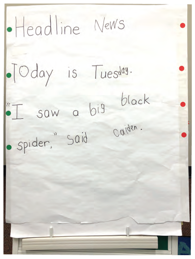 Headline News
Today is Tuesday.
"I saw a big black
spider," said Caiden.